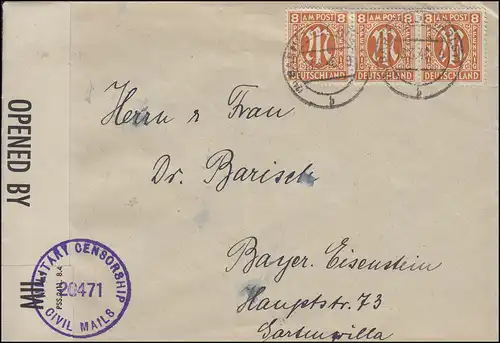 8 AM POST 8 8 AM POST 8 8 AM POST 8
DEUTSCHLAND DEUTSCHLAND DEUTSCHLAND
b b
Herrn & Frau
Dr. Barisch
Bayer. Eisenstein
Hauptstr. 73
Gartenvilla
OPENED BY
MIL
MILITARY CENSORSHIP
20471
CIVIL MAILS